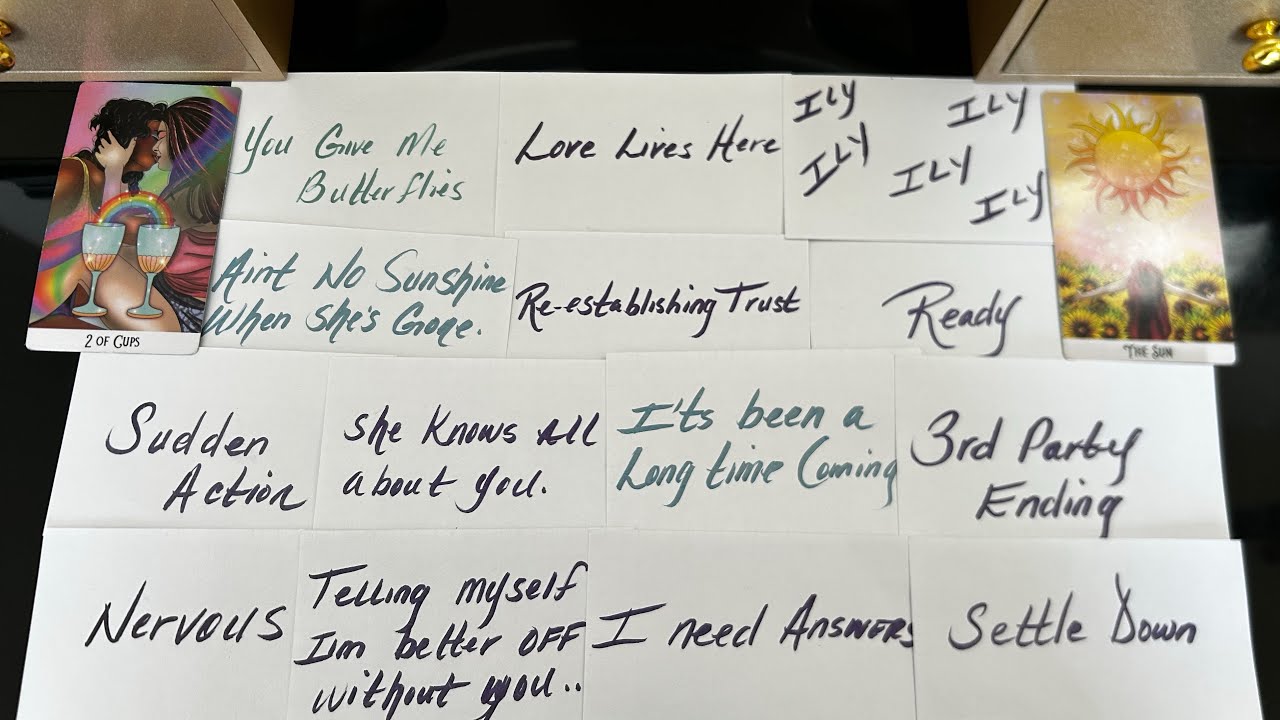 You Give Me
Butterflies
Love Lives Here
ILY
ILY
ILY
ILY
ILY
2 OF CUPS
THE SUN
Aint No Sunshine
When She's Gone.
Re-establishing Trust
Ready
Sudden
Action
She Knows All
about you.
I'ts been a
Long time Coming
3rd Party
Ending
Nervous
Telling myself
I'm better OFF
without you..
I need Answers
Settle Down